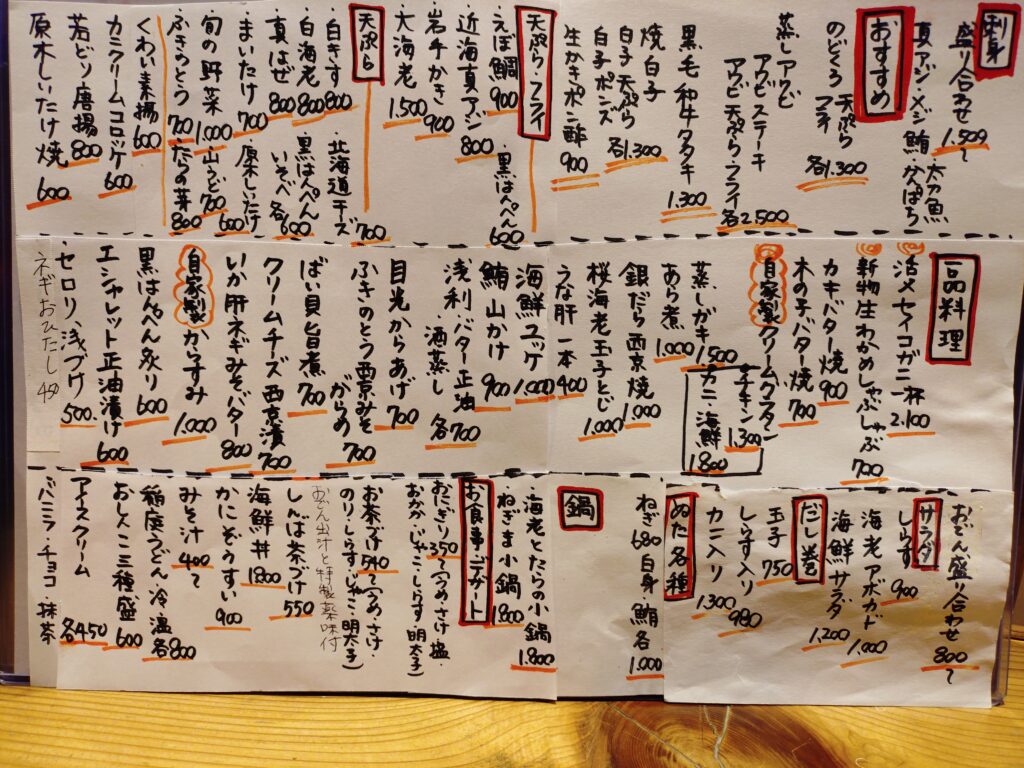 刺身
盛り合わせ 1.500〜
真アジ・メジ鮪・かんぱち
太刀魚
おすすめ
のどくろ 天ぷら フライ 各1.300
蒸しアワビ
アワビステーキ
アワビ天ぷら・フライ 各2.500
黒毛和牛タタキ 1.300
焼白子
白子天ぷら
白子ポンズ 各1.300
生かきポン酢 900
天ぷら・フライ
えぼ鯛 900
・黒はんぺん 600
近海真アジ 800
岩手かき 900
大海老 1.500
天ぷら
白きす 800
・北海道チーズ 700
白海老 800
・黒はんぺん
いそべ各600
真はぜ 800
まいたけ 700
・原木しいたけ 600
旬の野菜 1.000
・山うど 700
ふきのとう 700
・たらの芽 800
くわい素揚 600
カニクリームコロッケ 600
若どり唐揚 800
原木しいたけ焼 600
一品料理
活〆セイコガニ一杯 2.100
新物生わかめしゃぶしゃぶ 700
カキバター焼 900
木の子バター焼 700
自家製クリームグラタン
チキン 1.300
カニ・海鮮 1.800
蒸しガキ 1.500
あら煮 1.000
銀だら西京焼 1.000
桜海老玉子とじ 1.000
うな肝一本 400
海鮮ユッケ 1.000
鮪山かけ 900
浅利バター正油
・酒蒸し 各700
目光からあげ 700
ふきのとう西京みそ
がらめ 700
ばい貝旨煮 700
クリームチーズ西京漬 700
いか肝ネギみそバター 800
自家製からすみ 1.000
黒はんぺん炙り 600
エシャレット正油漬け 600
・セロリ、浅づけ 500
ネギおひたし 450
おでん盛り合わせ 800〜
サラダ
しらす 900
海老アボカド 1.000
海鮮サラダ 1.200
だし巻
玉子 750
しらす入り 980
カニ入り 1.300
ぬた各種
ねぎ 680 白身・鮪各 1.000
鍋
海老とたらの小鍋 1.800
ねぎま小鍋 1.800
お食事・デザート
おにぎり 350〜(うめ・さけ・塩・
おかか・じゃこ・しらす 明太子)
お茶づけ 540〜(うめ・さけ・
のり・しらす・じゃこ・明太子)
おでん出汁と特製薬味付
しんば茶づけ 550
海鮮丼 1800
かにぞうすい 900
みそ汁 400〜
稲庭うどん 冷・温 各800
おしんこ三種盛 600
アイスクリーム 各450
バニラ・チョコ・抹茶